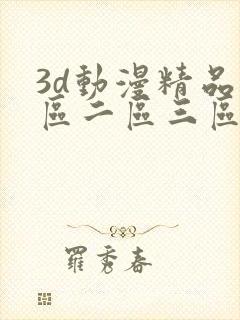 3d動漫精品
區二區三區
羅秀春